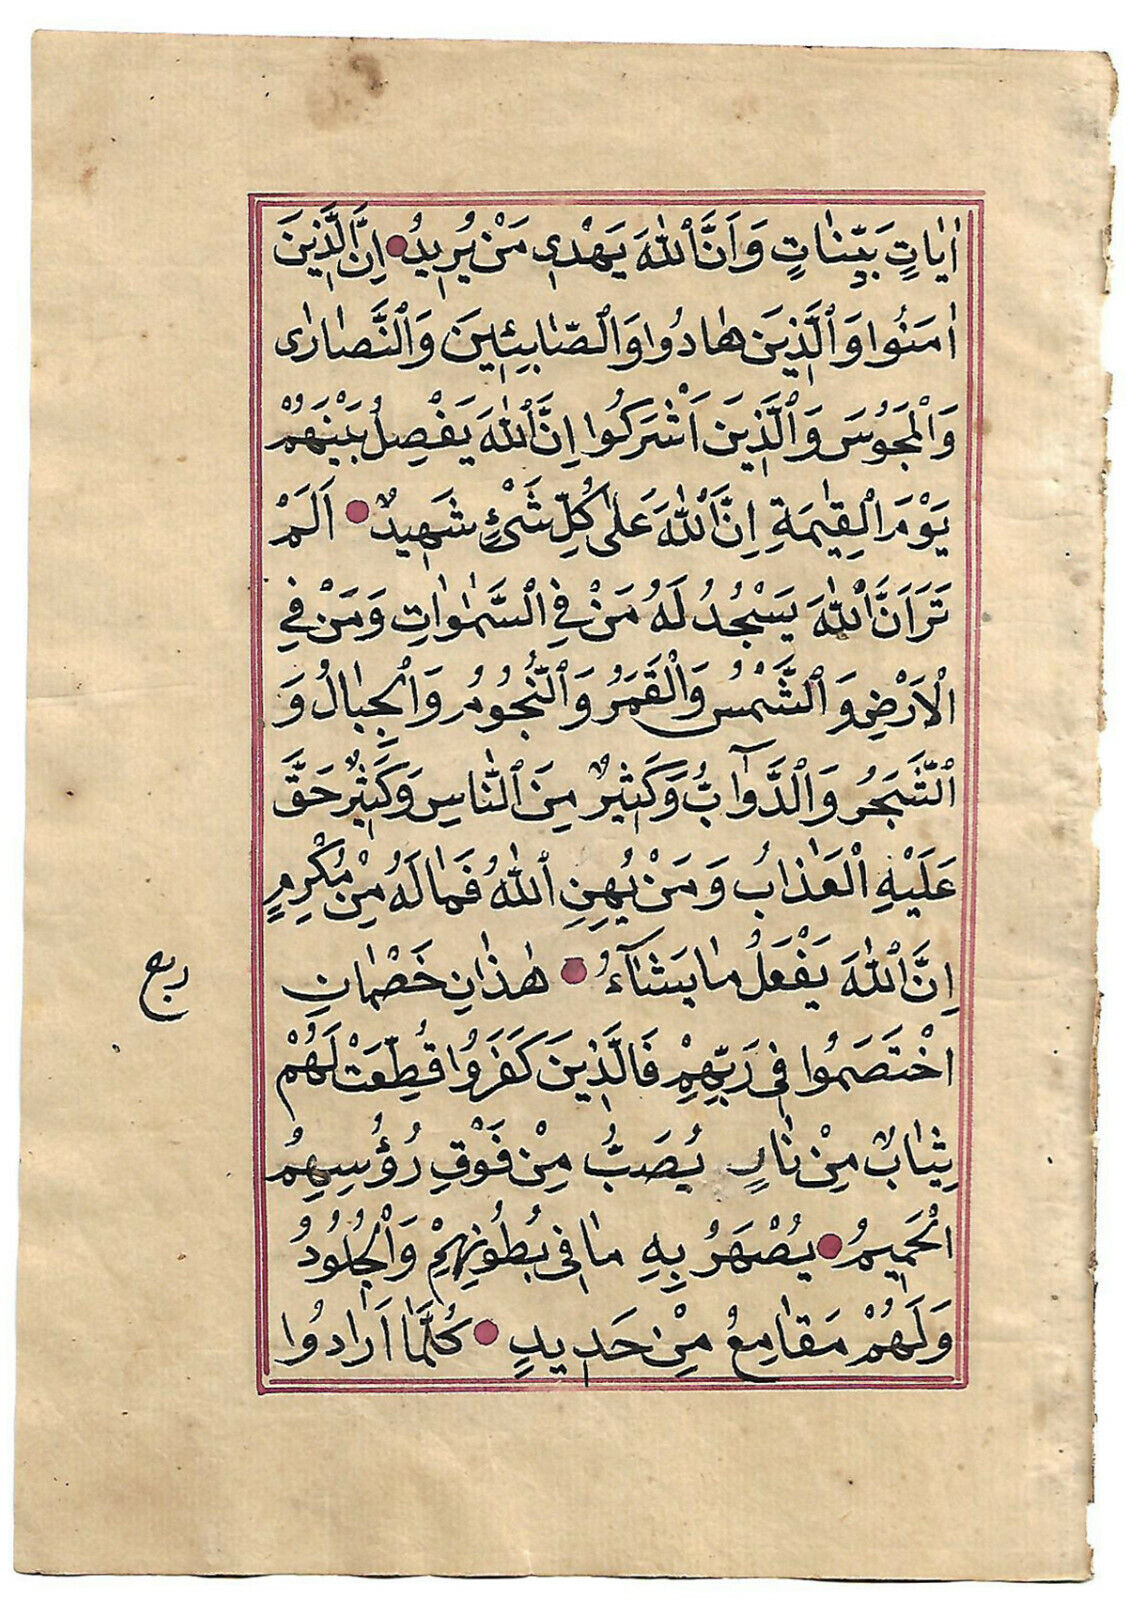 اٰيَاتٍ بَيِّنَاتٍ وَاَنَّ اللّٰهَ يَهْدِى مَنْ يُرِيدُ اِنَّ الَّذِينَ
اٰمَنُوا وَالَّذِينَ هَادُوا وَالصَّابِئِينَ وَالنَّصَارٰى
وَالْمَجُوسَ وَالَّذِينَ اَشْرَكُوا اِنَّ اللّٰهَ يَفْصِلُ بَيْنَهُمْ
يَوْمَ الْقِيٰمَةِ اِنَّ اللّٰهَ عَلٰى كُلِّ شَىْءٍ شَهِيدٌ اَلَمْ
تَرَ اَنَّ اللّٰهَ يَسْجُدُ لَهُ مَنْ فِى السَّمٰوَاتِ وَمَنْ فِى
الْاَرْضِ وَالشَّمْسُ وَالْقَمَرُ وَالنُّجُومُ وَالْجِبَالُ وَ
الشَّجَرُ وَالدَّوَآبُّ وَكَثِيرٌ مِنَ النَّاسِ وَكَثِيرٌ حَقَّ
عَلَيْهِ الْعَذَابُ وَمَنْ يُهِنِ اللّٰهُ فَمَا لَهُ مِنْ مُكْرِمٍ
اِنَّ اللّٰهَ يَفْعَلُ مَا يَشَآءُ هٰذَانِ خَصْمَانِ
ربع
اخْتَصَمُوا فِى رَبِّهِمْ فَالَّذِينَ كَفَرُوا قُطِّعَتْ لَهُمْ
ثِيَابٌ مِنْ نَارٍ يُصَبُّ مِنْ فَوْقِ رُؤُسِهِمُ
الْحَمِيمُ يُصْهَرُ بِهِ مَا فِى بُطُونِهِمْ وَالْجُلُودُ
وَلَهُمْ مَقَامِعُ مِنْ حَدِيدٍ كُلَّمَا اَرَادُوا